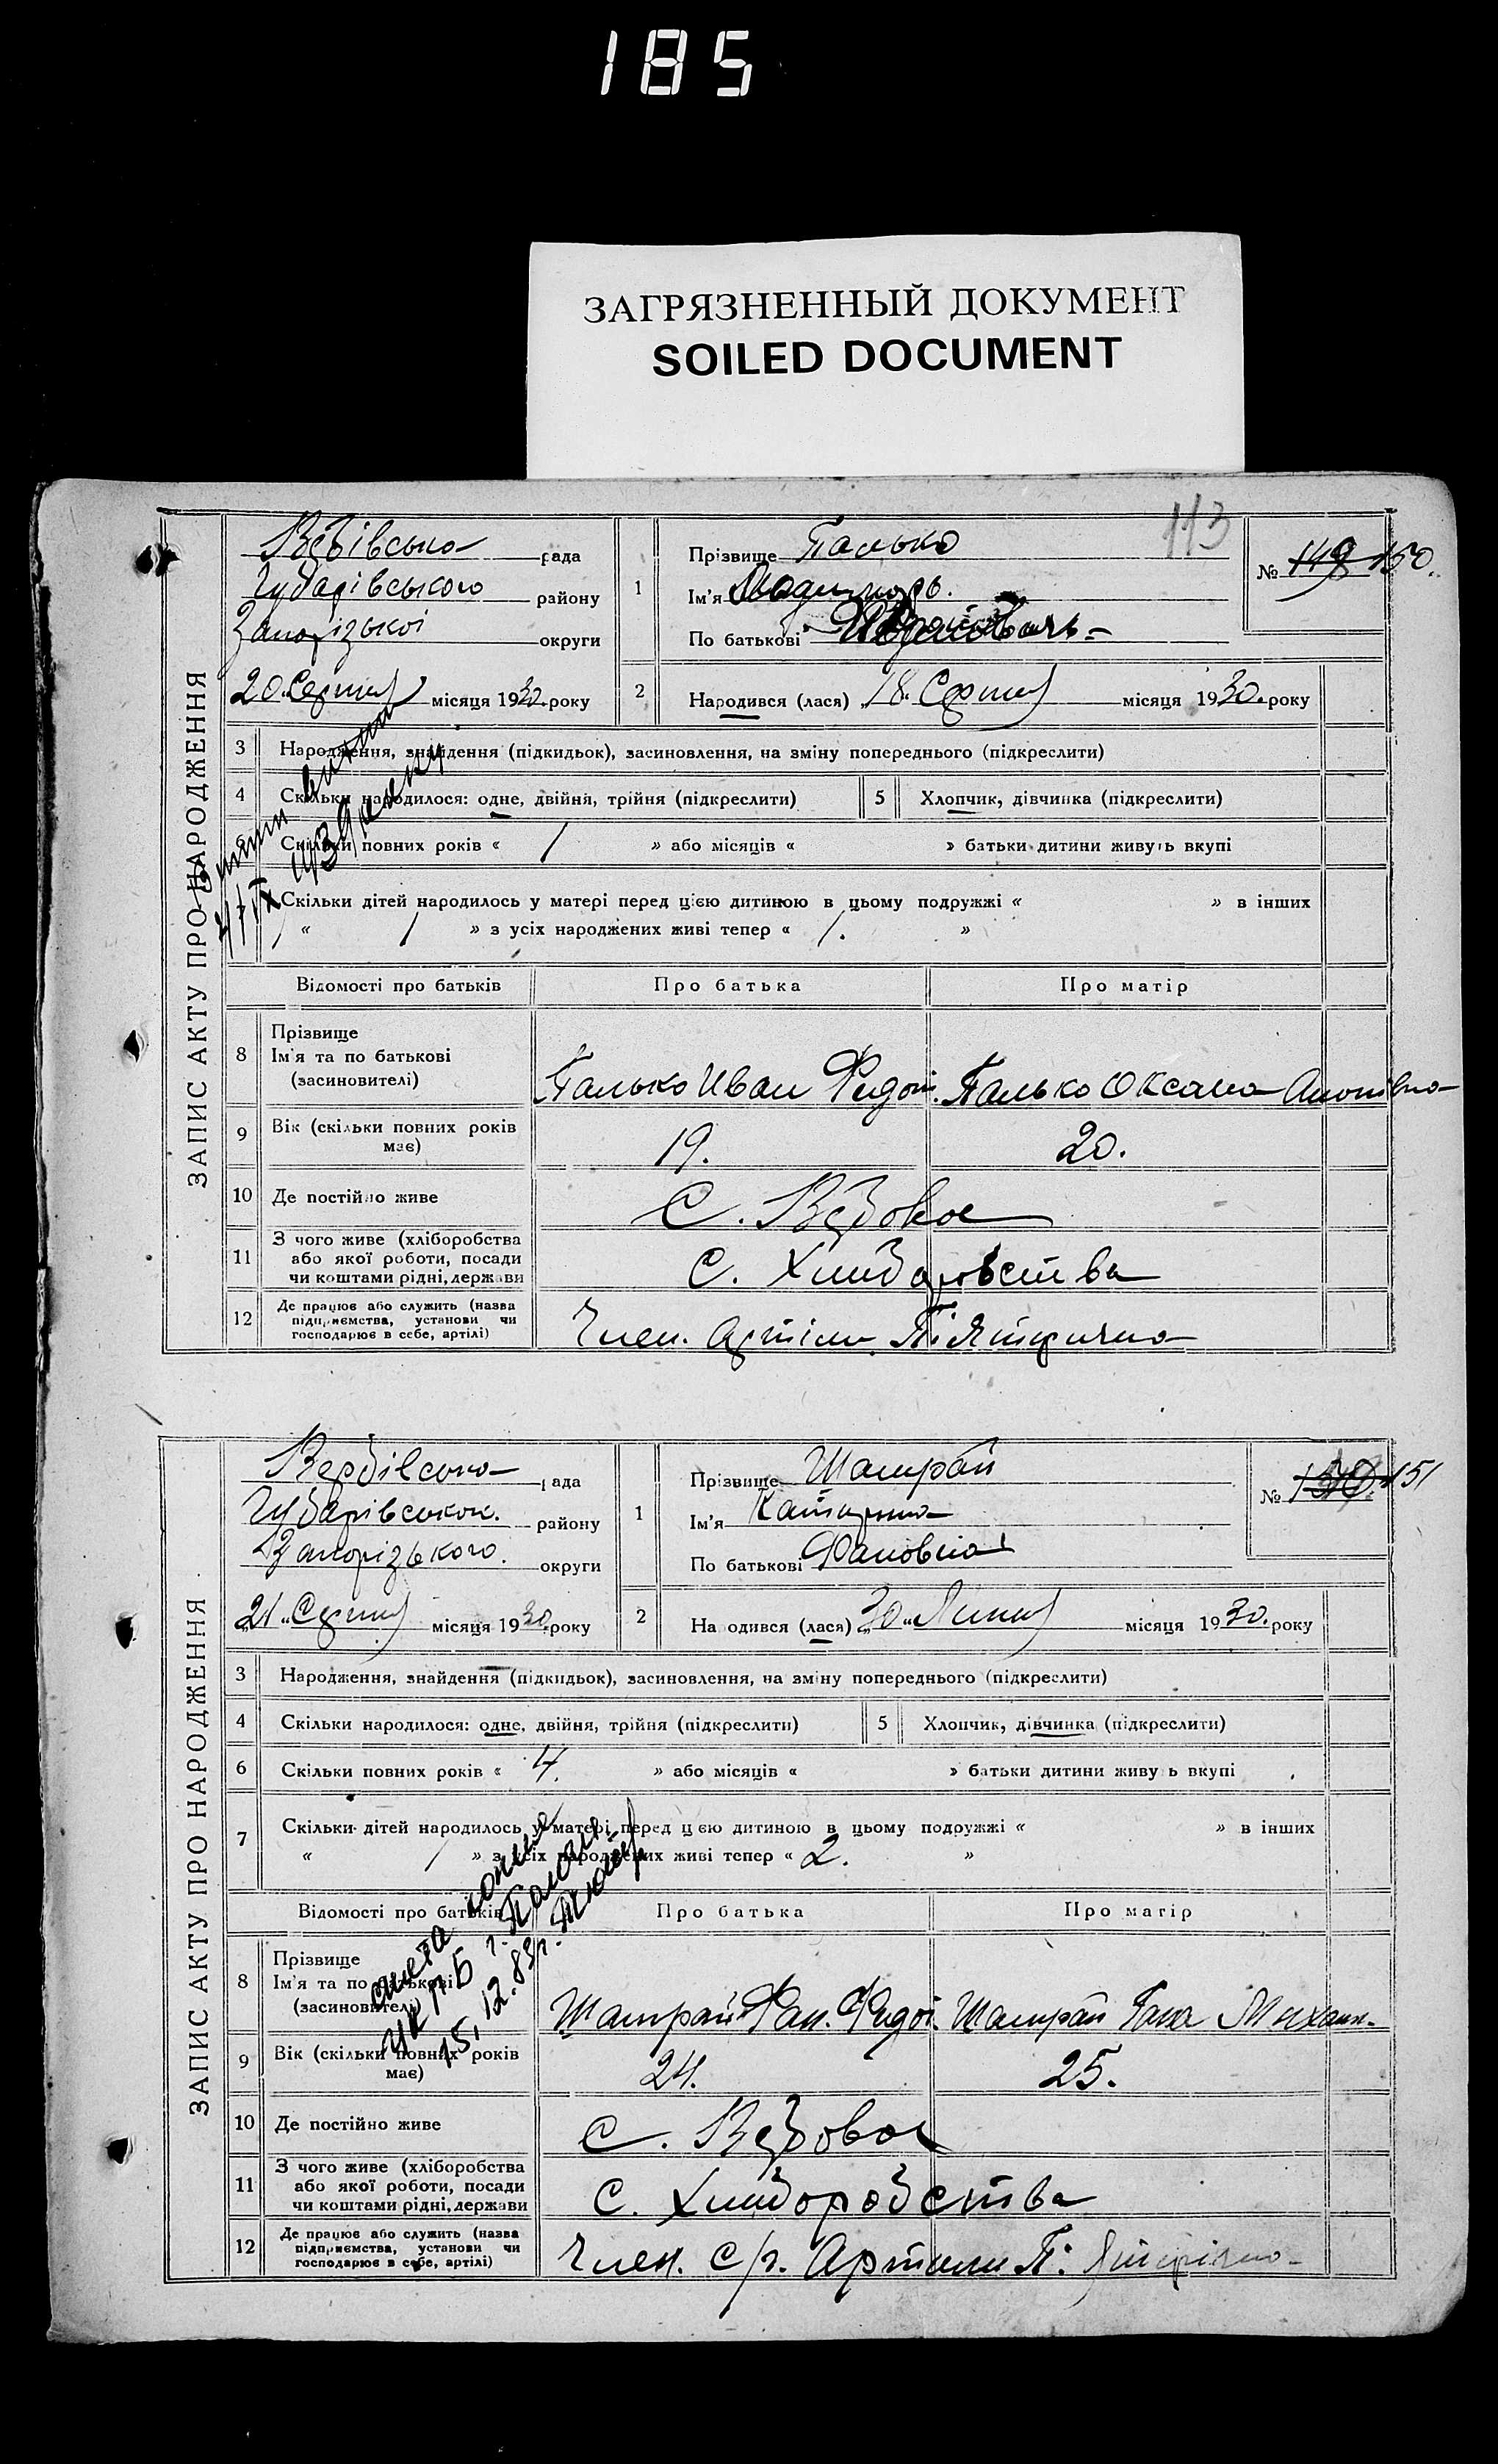 185
ЗАГРЯЗНЕННЫЙ ДОКУМЕНТ
SOILED DOCUMENT
113
ЗАПИС АКТУ ПРО НАРОДЖЕННЯ
рада
Чубарівського району
Запорізької округи
20 Серпня місяця 1930 року
1
Прізвище Палько
Ім'я
По батькові
№ 149 150.
2
Народився (лася) 18. Серпня місяця 1930. року
3 Народження, знайдення (підкидьок), засиновлення, на зміну попереднього (підкреслити)
4 Скільки народилося: одне, двійня, трійня (підкреслити) 5 Хлопчик, дівчинка (підкреслити)
Скільки повних років « 1 » або місяців « » батьки дитини живуть вкупі
Скільки дітей народилось у матері перед цією дитиною в цьому подружжі « » в інших
« 1 » з усіх народжених живі тепер « 1. »
Відомості про батьків Про батька Про матір
8 Прізвище
Ім'я та по батькові
(засиновителі)
Палько Иван Палько Оксана
9 Вік (скільки повних років має) 19. 20.
10 Де постійно живе С.
11 З чого живе (хліборобства або якої роботи, посади чи коштами рідні, держави С.
12 Де працює або служить (назва підприємства, установи чи господарює в себе, артілі) Член. Артіли П'ятирична
ЗАПИС АКТУ ПРО НАРОДЖЕННЯ
Вербівська рада
району
Запорізького. округи
21 Серпня місяця 1930 року
1
Прізвище Шамрай
Ім'я Катирина
По батькові Фановна
№ 150 151
2
Народився (лася) 30 Липня місяця 1930. року
3 Народження, знайдення (підкидьок), засиновлення, на зміну попереднього (підкреслити)
4 Скільки народилося: одне, двійня, трійня (підкреслити) 5 Хлопчик, дівчинка (підкреслити)
6 Скільки повних років « 4. » або місяців « » батьки дитини живуть вкупі
7 Скільки дітей народилось у матері перед цією дитиною в цьому подружжі « » в інших
« 1 » з усіх народжених живі тепер « 2. »
снета копия
15.12.83г.
Відомості про батьків Про батька Про матір
8 Прізвище
Ім'я та по батькові
(засиновителі)
Шамрай Фан. Шамрай Гана Михаил.
9 Вік (скільки повних років має) 24. 25.
10 Де постійно живе С.
11 З чого живе (хліборобства або якої роботи, посади чи коштами рідні, держави С.
12 Де працює або служить (назва підприємства, установи чи господарює в себе, артілі) Член. с/г. Артили